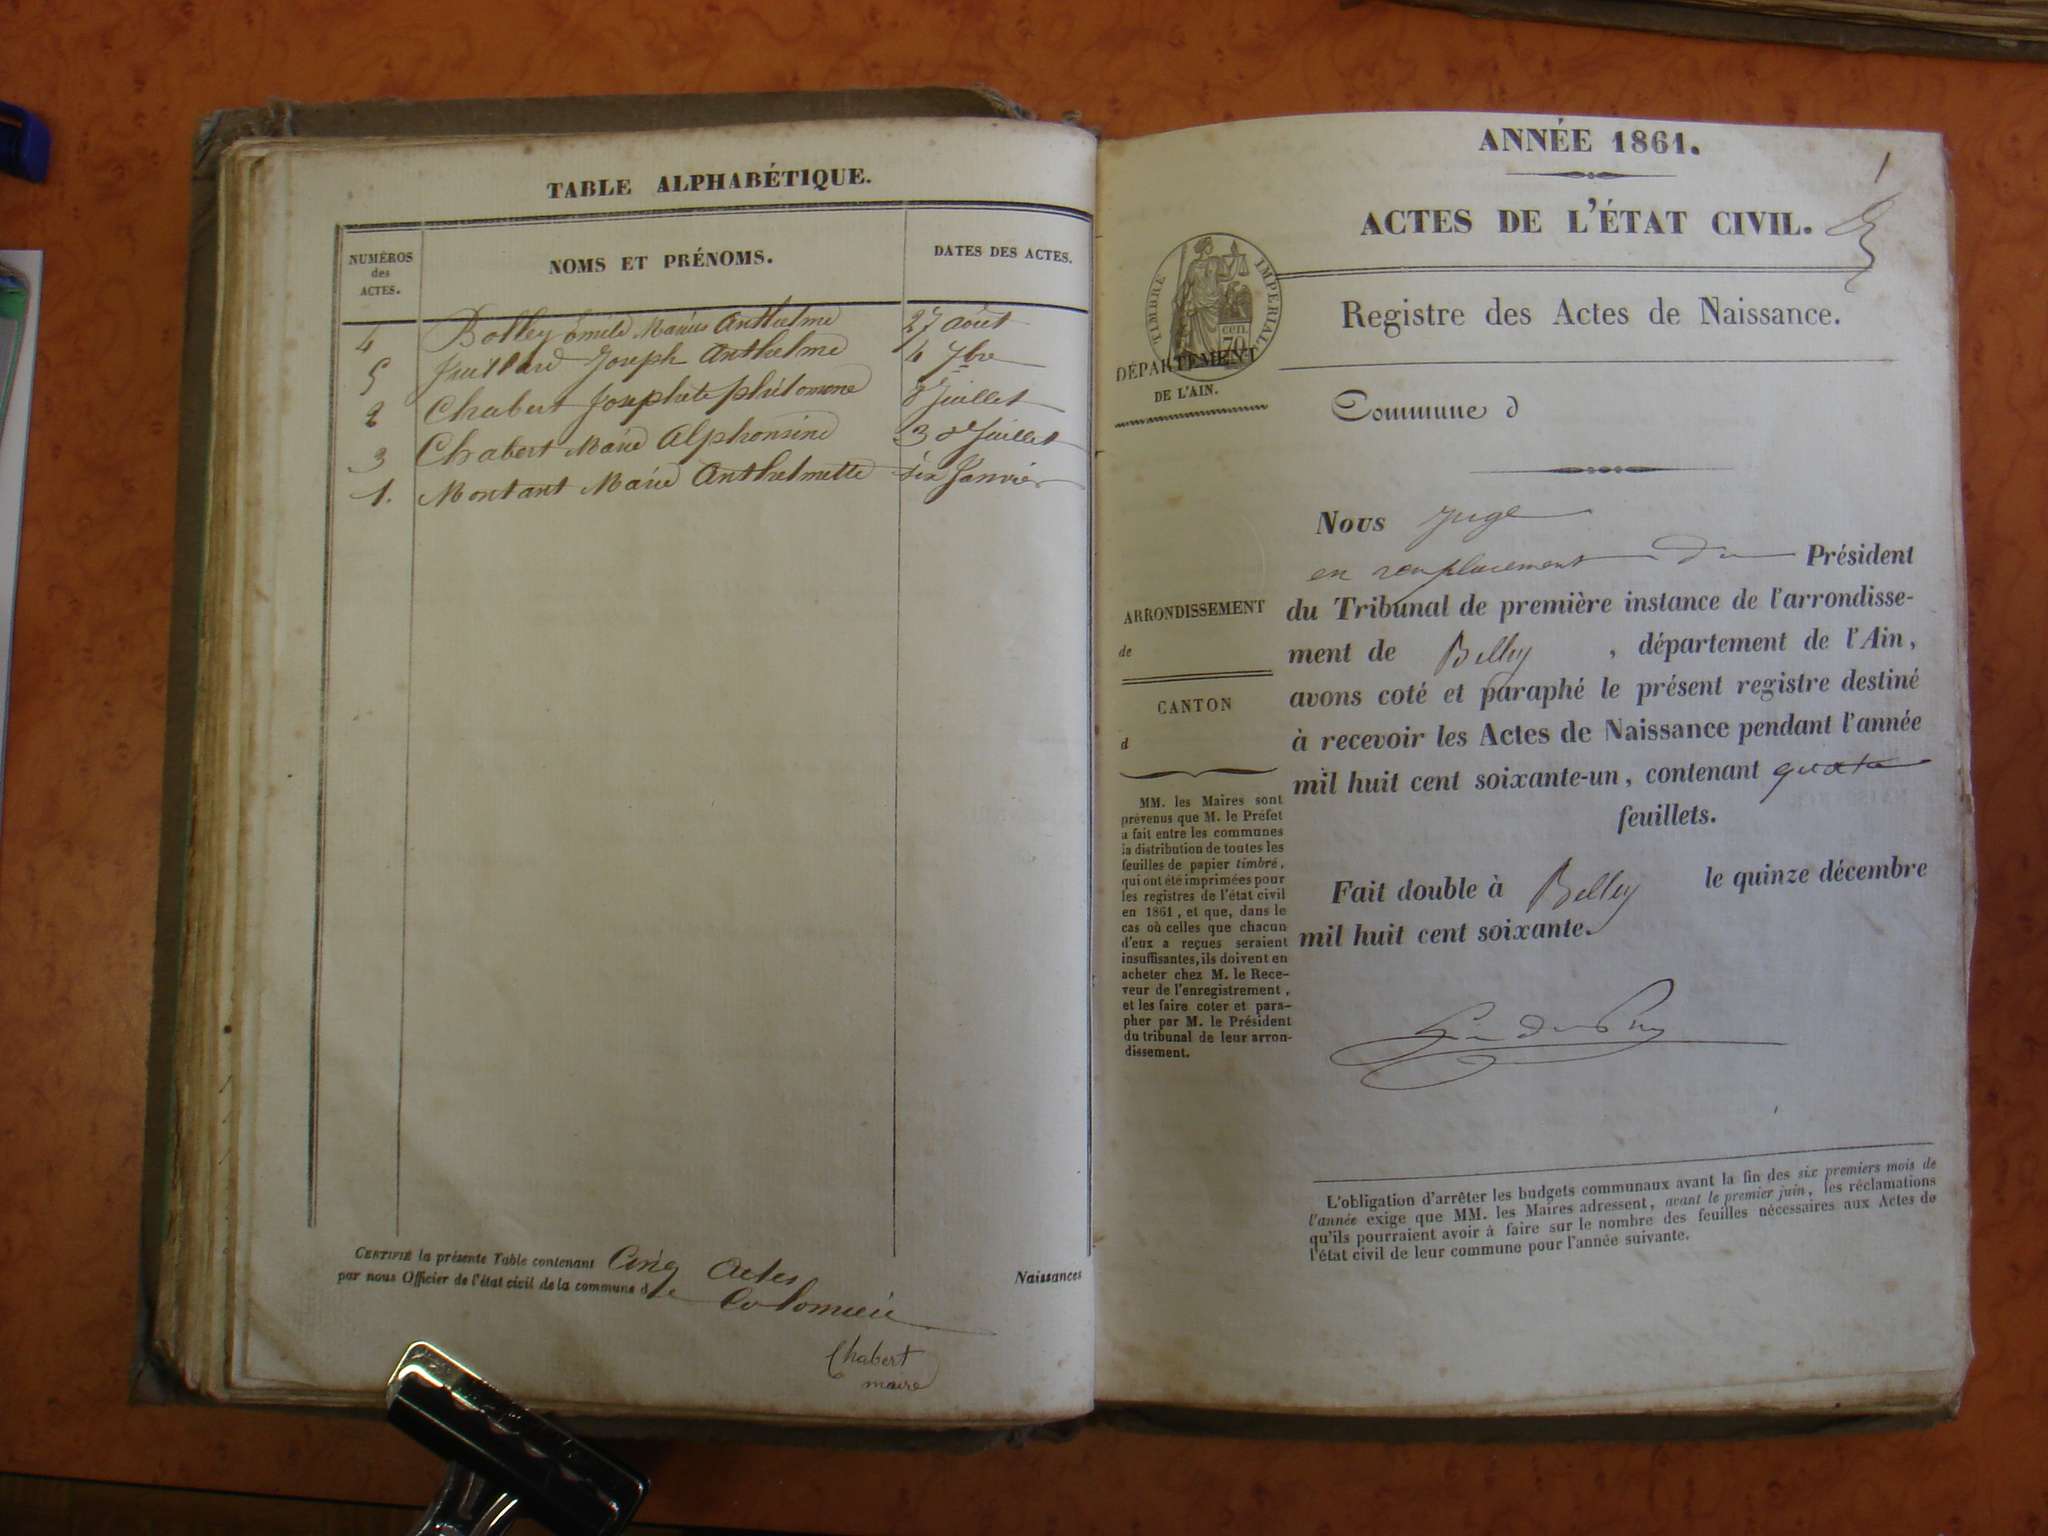 TABLE ALPHABÉTIQUE.
NUMÉROS
des
ACTES.
NOMS ET PRÉNOMS.
DATES DES ACTES.
4 Bolley émile Marius Anthelme 27 août
5 Juillard Joseph Anthelme 4 7bre
2 Chabert Josephete philomene 8 Juillet
3 Chabert Marie Alphonsine 30 Juillet
1. Montant Marie Anthelmette Six Janvier
CERTIFIÉ la présente Table contenant Cinq actes Naissances
par nous Officier de l'état civil de la commune de Colomieu
Chabert
maire
ANNÉE 1861.
1
ACTES DE L'ÉTAT CIVIL.
TIMBRE IMPERIAL
70 cen.
Registre des Actes de Naissance.
DÉPARTEMENT
DE L'AIN.
Commune d
ARRONDISSEMENT
de
CANTON
d
MM. les Maires sont
prévenus que M. le Préfet
a fait entre les communes
la distribution de toutes les
feuilles de papier timbré,
qui ont été imprimées pour
les registres de l'état civil
en 1861, et que, dans le
cas où celles que chacun
d'eux a reçues seraient
insuffisantes, ils doivent en
acheter chez M. le Rece-
veur de l'enregistrement,
et les faire coter et para-
pher par M. le Président
du tribunal de leur arron-
dissement.
Nous Juge
en remplacement du Président
du Tribunal de première instance de l'arrondisse-
ment de Belley, département de l'Ain,
avons coté et paraphé le présent registre destiné
à recevoir les Actes de Naissance pendant l'année
mil huit cent soixante-un, contenant quatre
feuillets.
Fait double à Belley le quinze décembre
mil huit cent soixante.
L'obligation d'arrêter les budgets communaux avant la fin des six premiers mois de
l'année exige que MM. les Maires adressent, avant le premier juin, les réclamations
qu'ils pourraient avoir à faire sur le nombre des feuilles nécessaires aux Actes de
l'état civil de leur commune pour l'année suivante.